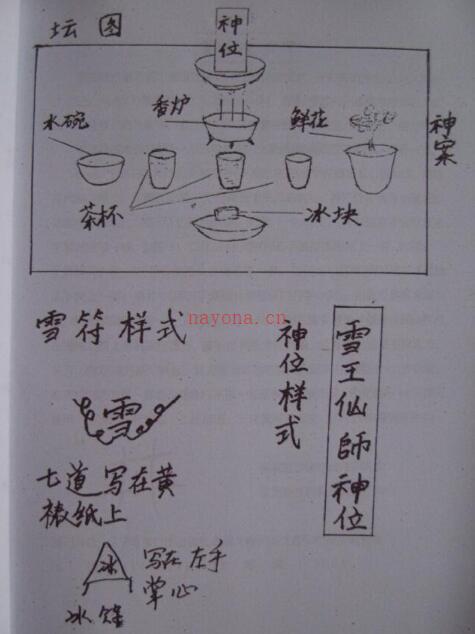 坛图
神位
香炉
水碗
鲜花
神案
茶杯
冰块
雪符样式
nayona.cn
神位样式
雪王仙師神位
雪
七道写在黄
裱纸上
冰
写在左手
掌心